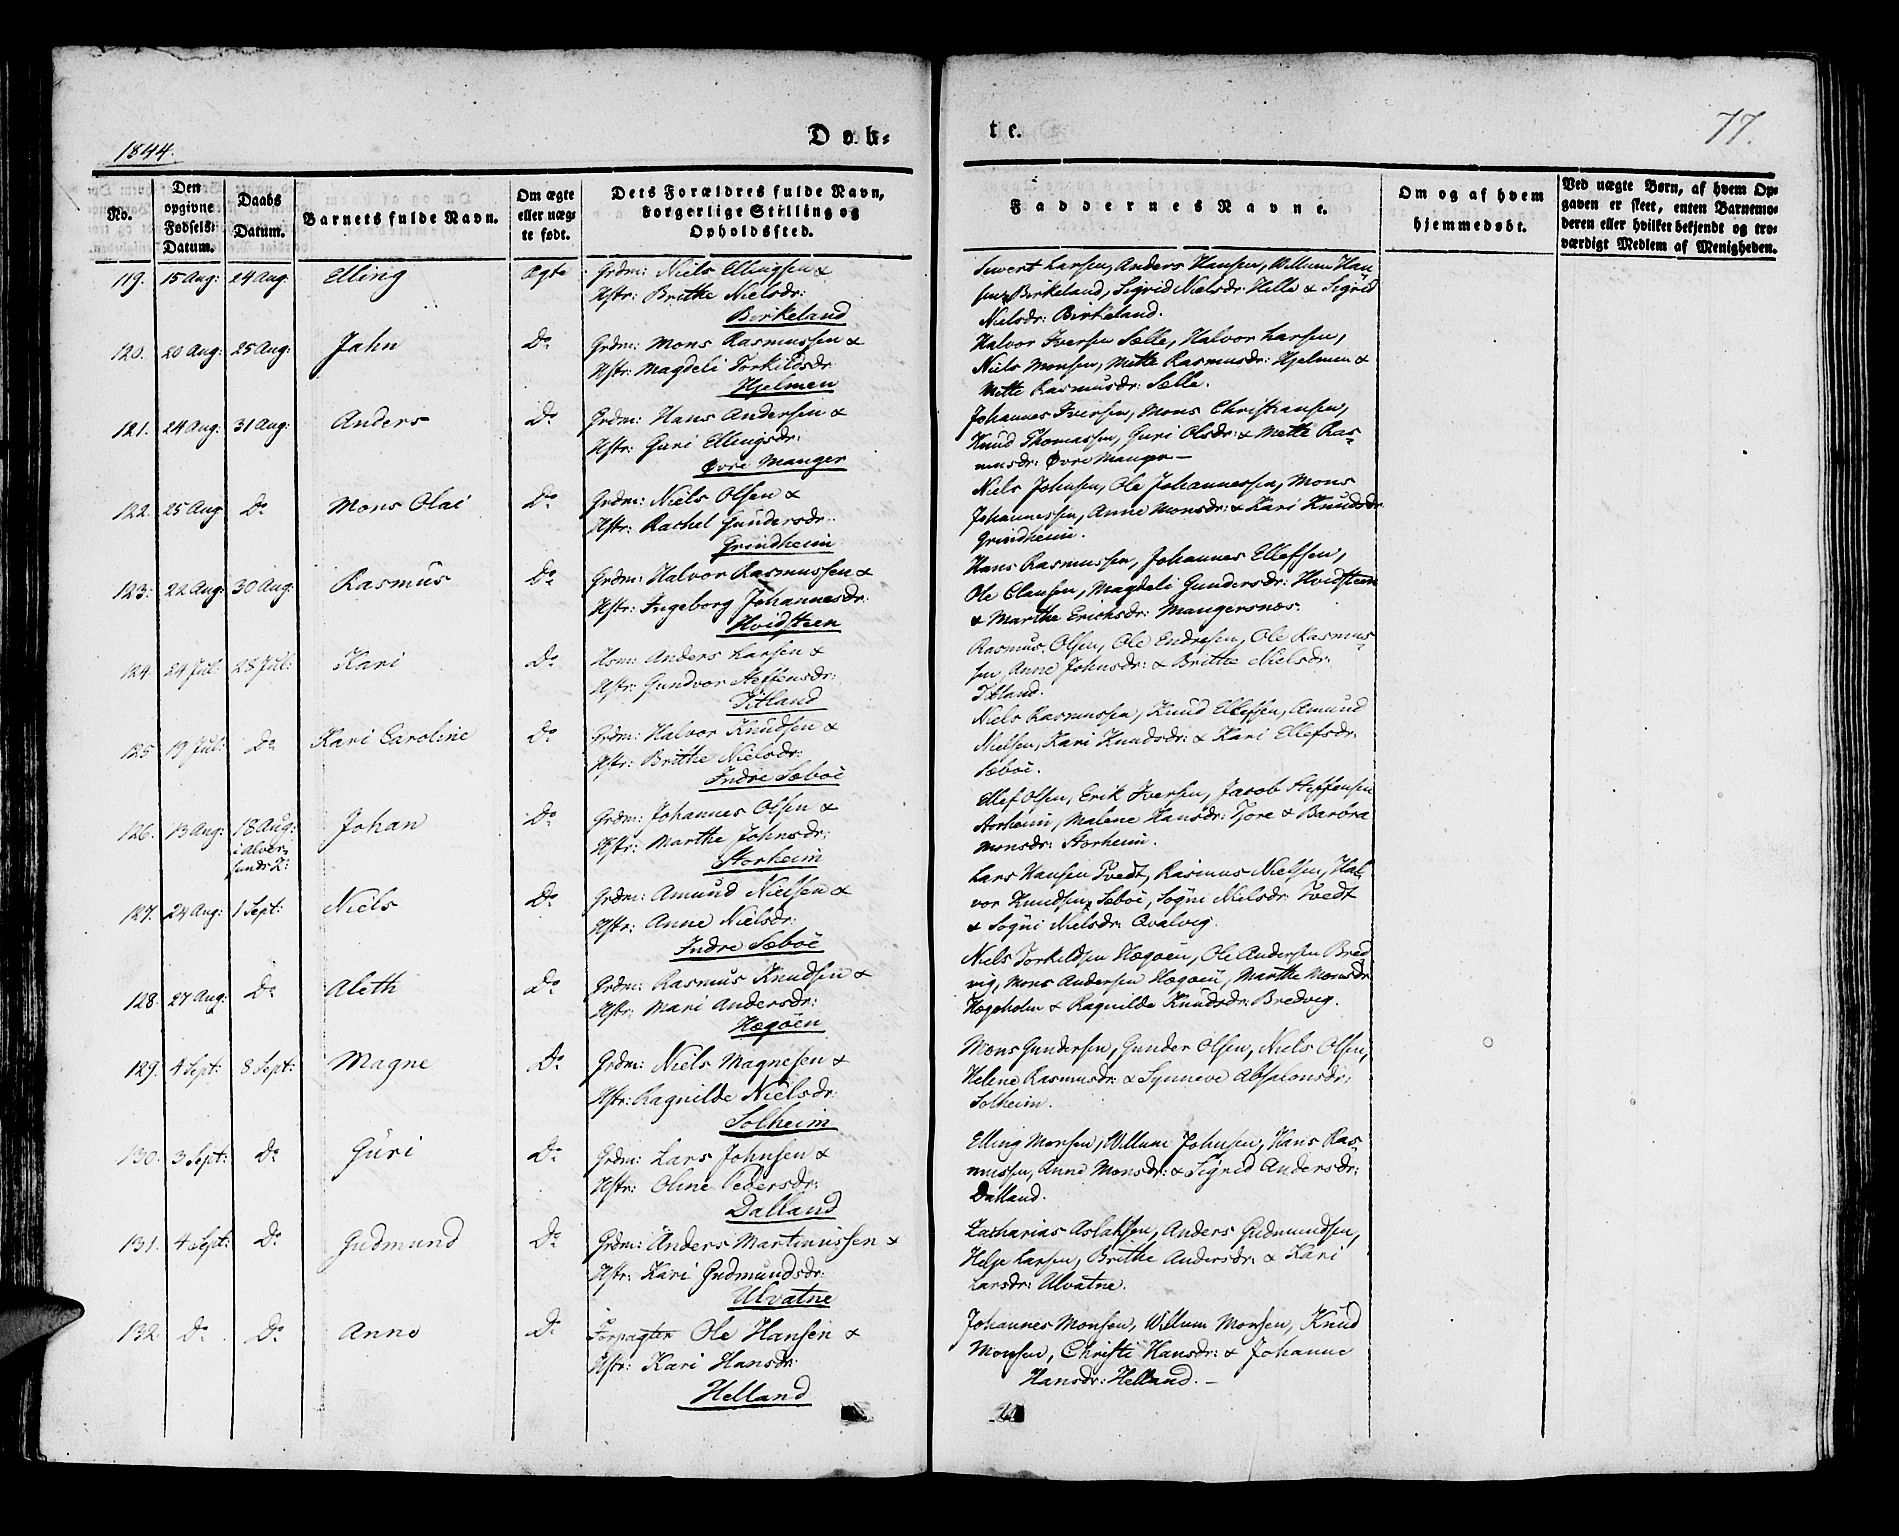 1844.
Døb=
te.
77.
No.
Den opgivne Fødsels-Datum.
Daabs Datum.
Barnets fulde Navn.
Om ægte eller uægte født.
Dets Forældres fulde Navn, borgerlige Stilling og Opholdssted.
Faddernes Navne.
Om og af hvem hjemmedøbt.
Ved uægte Børn, af hvem Opgaven er skeet, enten Barnemoderen eller hvilket bekjendt og troværdigt Medlem af Menigheden.
119. 15 Aug: 24 Aug: Elling Ægte Grdm: Niels Ellingsen &
Hstr: Brithe Nielsdr:
Birkeland
Siwert Larsen, Anders Hansen, Willum Han-
sen Birkeland, Sigrid Nielsdr: Helle & Sigrid
Nielsdr: Birkeland.
120. 20 Aug: 25 Aug: Jahn Do Grdm: Mons Rasmussen &
Hstr: Magdeli Torkildsdr:
Hjelmen
Halvor Iversen Sælle, Halvor Larsen,
Niels Monsen, Mette Rasmusdr: Hjelmen &
Mette Rasmusdr: Sælle.
121. 24 Aug: 31 Aug: Anders Do Grdm: Hans Andersen &
Hstr: Guri Ellingsdr:
Øvre Manger
Johannes Iversen, Mons Christiansen,
Knud Thomassen, Guri Olsdr: & Mette Ras-
musdr: Øvre Manger –
122. 25 Aug Do Mons Olai Do Grdm: Niels Olsen &
Hstr: Rachel Gundersdr:
Grindheim
Niels Johnsen, Ole Johannessen, Mons
Johannessen, Anne Monsdr: & Kari Knudsdr
Grindheim.
123. 22 Aug: 30 Aug: Rasmus Do Grdm: Halvor Rasmussen &
Hstr: Ingeborg Johannesdr:
Hvidsteen
Hans Rasmussen, Johannes Ellefsen,
Ole Clausen, Magdeli Gundersdr: Hvidsteen
& Marthe Erichsdr: Mangersnæs.
124 24 Jul: 28 Jul: Kari Do Hsm: Anders Larsen &
Hstr: Gundvor Steffensdr:
Titland
Rasmus Olsen, Ole Endresen, Ole Rasmus-
sen, Anne Johnsdr: & Brithe Nielsdr:
Titland.
125 19 Jul: Do Kari Caroline Do Grdm: Halvor Knudsen &
Hstr: Brithe Nielsdr:
Indre Sæboe
Niels Rasmussen, Knud Ellefsen, Amund
Nielsen, Kari Knudsdr: & Kari Ellefsdr:
Sæboe.
126. 13 Aug: 18 Aug: Johan Do Grdm: Johannes Olsen &
i Alver-
sunds K:
Hstr: Marthe Johnsdr:
Storheim
Ellef Olsen, Erik Iversen, Jacob Steffensen
Storheim, Malene Hansdr: Tjore & Barbra
Monsdr: Storheim.
127. 24 Aug: 1 Sept: Niels Do Grdm: Amund Nielsen &
Hstr: Anne Nielsdr:
Indre Sæboe
Lars Hansen Tvedt, Rasmus Nielsen, Hal-
vor Knudsen, Sæboe, Sogni Nielsdr: Tvedt
& Sogni Nielsdr: Qvalvig.
128. 27 Aug: Do Aleth Do Grdm: Rasmus Knudsen &
Hstr: Mari Andersdr:
Hægøen
Niels Torkildsen Hægøen, Ole Andersen Bred-
vig, Mons Andersen Hægøen, Marthe Monsdr
Hægeholm & Ragnilde Knudsdr: Bredvig.
129. 4 Sept: 8 Sept: Magne Do Grdm: Niels Magnesen &
Hstr: Ragnilde Nielsdr:
Solheim
Mons Gundersen, Gunder Olsen, Niels Olsen,
Helene Rasmusdr: & Synneve Absalonsdr:
Solheim.
130. 3 Sept: Do Guri Do Grdm: Lars Johnsen &
Hstr: Oline Pedersdr:
Dalland
Elling Monsen, Willum Johnsen, Hans Ras-
mussen, Anne Monsdr: & Sigrid Andersdr:
Dalland.
131. 4 Sept: Do Gudmund Do Grdm: Anders Martinussen &
Hstr: Kari Gudmundsdr:
Ulvatne
Zacharias Aslaksen, Anders Gudmundsen,
Helje Larsen, Brithe Andersdr: & Kari
Larsdr: Ulvatne.
132 Do Do Anne Do Forpagter Ole Hansen &
Hstr: Kari Hansdr:
Helland
Johannes Monsen, Willum Monsen, Knud
Monsen, Christi Hansdr: & Johanne
Hansdr: Helland. –